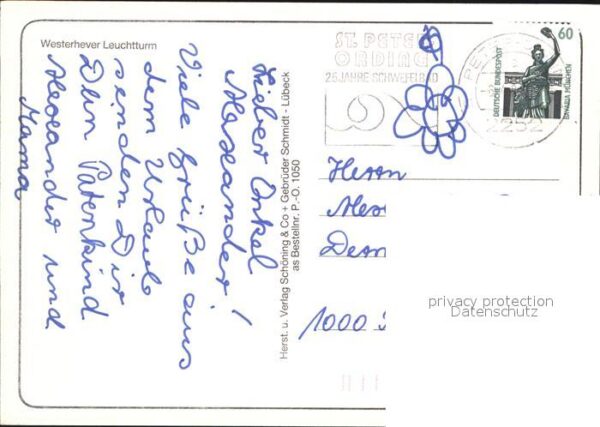 Westerhever Leuchtturm
Lieber Onkel
Alexander!
Viele Grüße aus
dem Urlaub
senden Dir
Dein Patenkind
Alexander und
Mama
Herst. u. Verlag Schöning & Co + Gebrüder Schmidt - Lübeck
as Bestellnr. P.-O. 1050
ST. PETER
ORDING
25 JAHRE SCHWEFELBAD
2252
60
DEUTSCHE BUNDESPOST
BAVARIA MÜNCHEN
Herrn
Alex
1000
privacy protection
Datenschutz